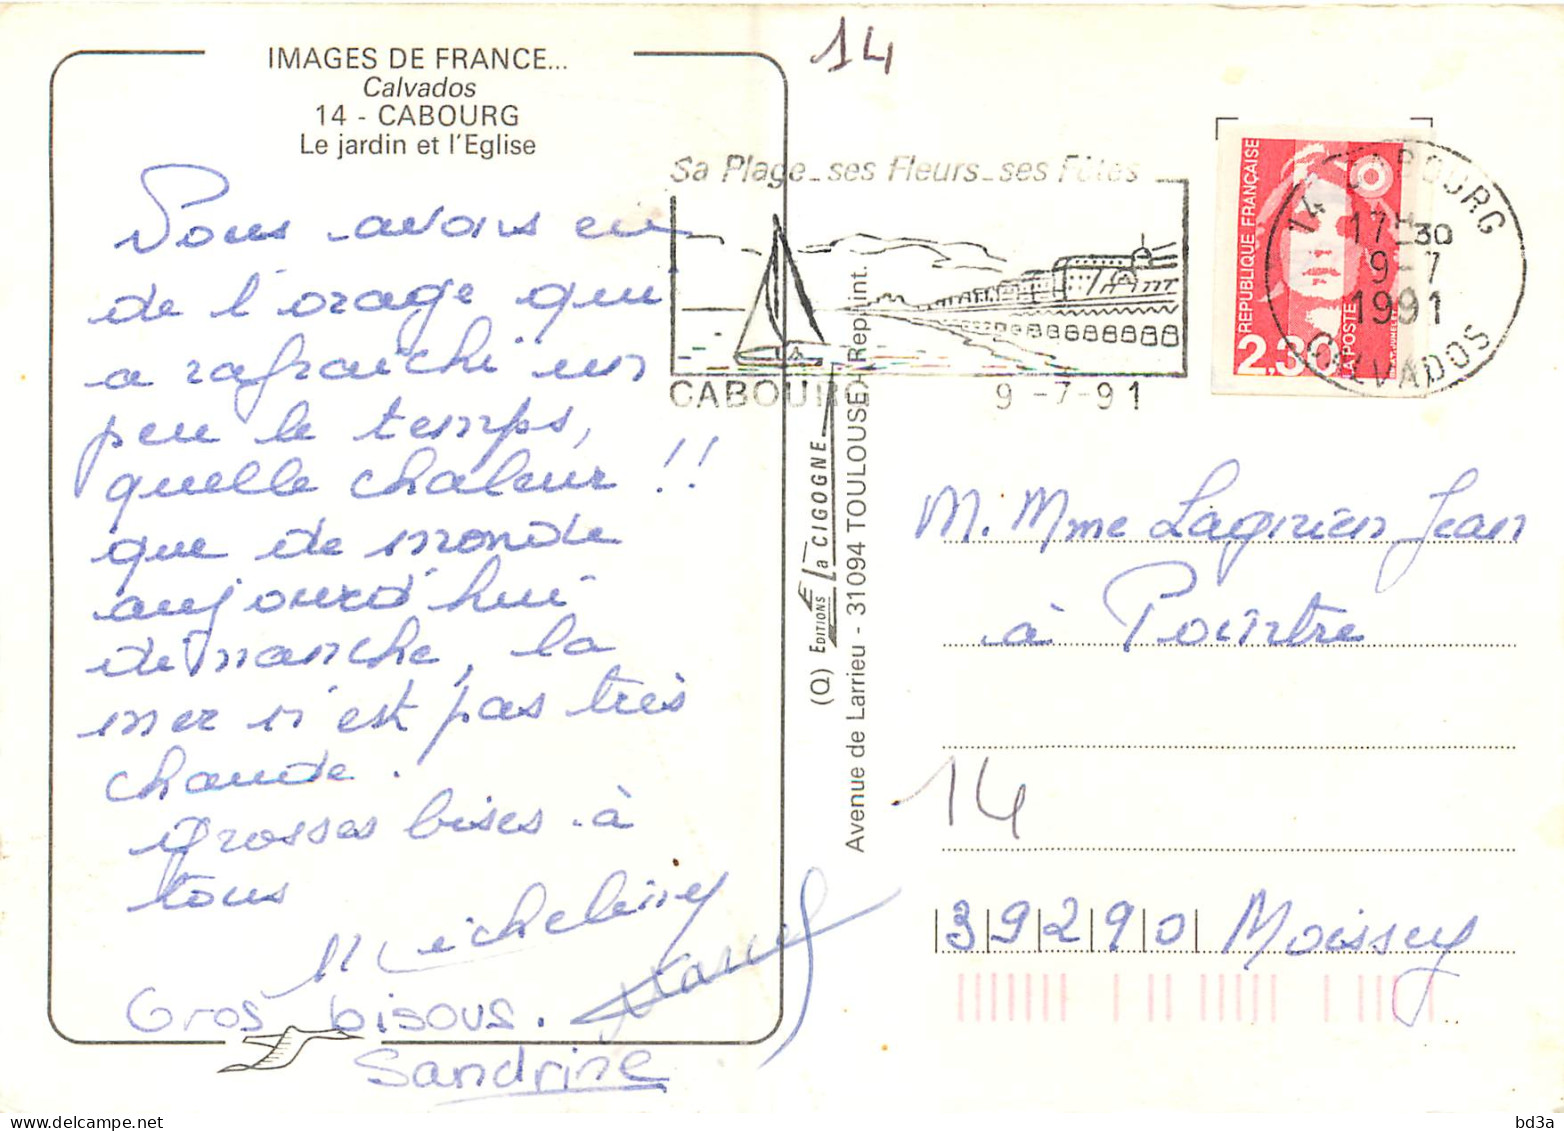 IMAGES DE FRANCE...
Calvados
14 - CABOURG
Le jardin et l'Eglise
Nous avons eu
de l'orage qui
a rafraichi un
peu le temps,
quelle chaleur !!
que de monde
aujourd'hui
dimanche, la
mer n'est pas très
chaude.
Grosses bises à
tous
Micheline
Marcel
Gros bisous.
Sandrine
14
Sa Plage_ses Fleurs_ses Fêtes
CABOURG 9-7-91
REPUBLIQUE FRANÇAISE
2,30
LA POSTE
14 CABOURG
17H30
9-7
1991
CALVADOS
(Q) EDITIONS La CIGOGNE
Avenue de Larrieu - 31094 TOULOUSE) Rep. int.
M. Mme Jean
à Pointre
14
39290 Moissey
bd3a